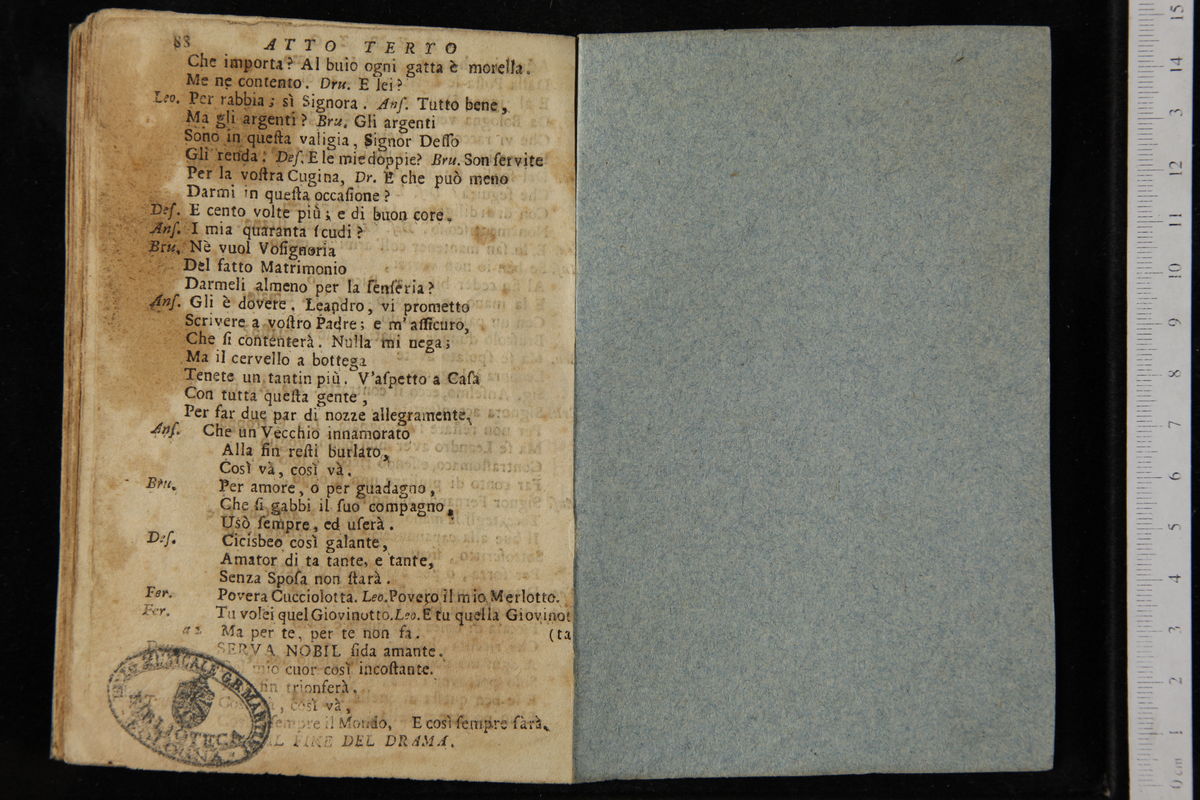 88 ATTO TERZO
Che importa? Al buio ogni gatta è morella.
Me ne contento. Dru. E lei?
Leo. Per rabbia; sì Signora. Anſ. Tutto bene,
Ma gli argenti? Bru. Gli argenti
Sono in queſta valigia, Signor Deſſo
Gli renda. Deſ. E le mie doppie? Bru. Son ſervite
Per la voſtra Cugina, Dr. E che può meno
Darmi in queſta occaſione?
Deſ. E cento volte più; e di buon core.
Anſ. I mia quaranta ſcudi?
Bru. Nè vuol Voſignoria
Del fatto Matrimonio
Darmeli almeno per la ſenſeria?
Anſ. Gli è dovere. Leandro, vi prometto
Scrivere a voſtro Padre; e m'aſſicuro,
Che ſi contenterà. Nulla mi nega;
Ma il cervello a bottega
Tenete un tantin più. V'aſpetto a Caſa
Con tutta queſta gente,
Per far due par di nozze allegramente.
Anſ. Che un Vecchio innamorato
Alla fin reſti burlato,
Così và, così và.
Bru. Per amore, o per guadagno,
Che ſi gabbi il ſuo compagno,
Usò ſempre, ed uſerà.
Deſ. Cicisbeo così galante,
Amator di ta tante, e tante,
Senza Spoſa non ſtarà.
Fer. Povera Cucciolotta. Leo. Povero il mio Merlotto.
Fer. Tu volei quel Giovinotto. Leo. E tu quella Giovinot
a 2 Ma per te, per te non fa. (ta
SERVA NOBIL fida amante.
mio cuor così incoſtante.
fin trionferà.
così và,
ſempre il Mondo, E così ſempre ſarà.
IL FINE DEL DRAMA.
MUSICALE G.B. MARTINI
BIBLIOTECA
BOLOGNA
0 cm 1 2 3 4 5 6 7 8 9 10 11 12 13 14 15